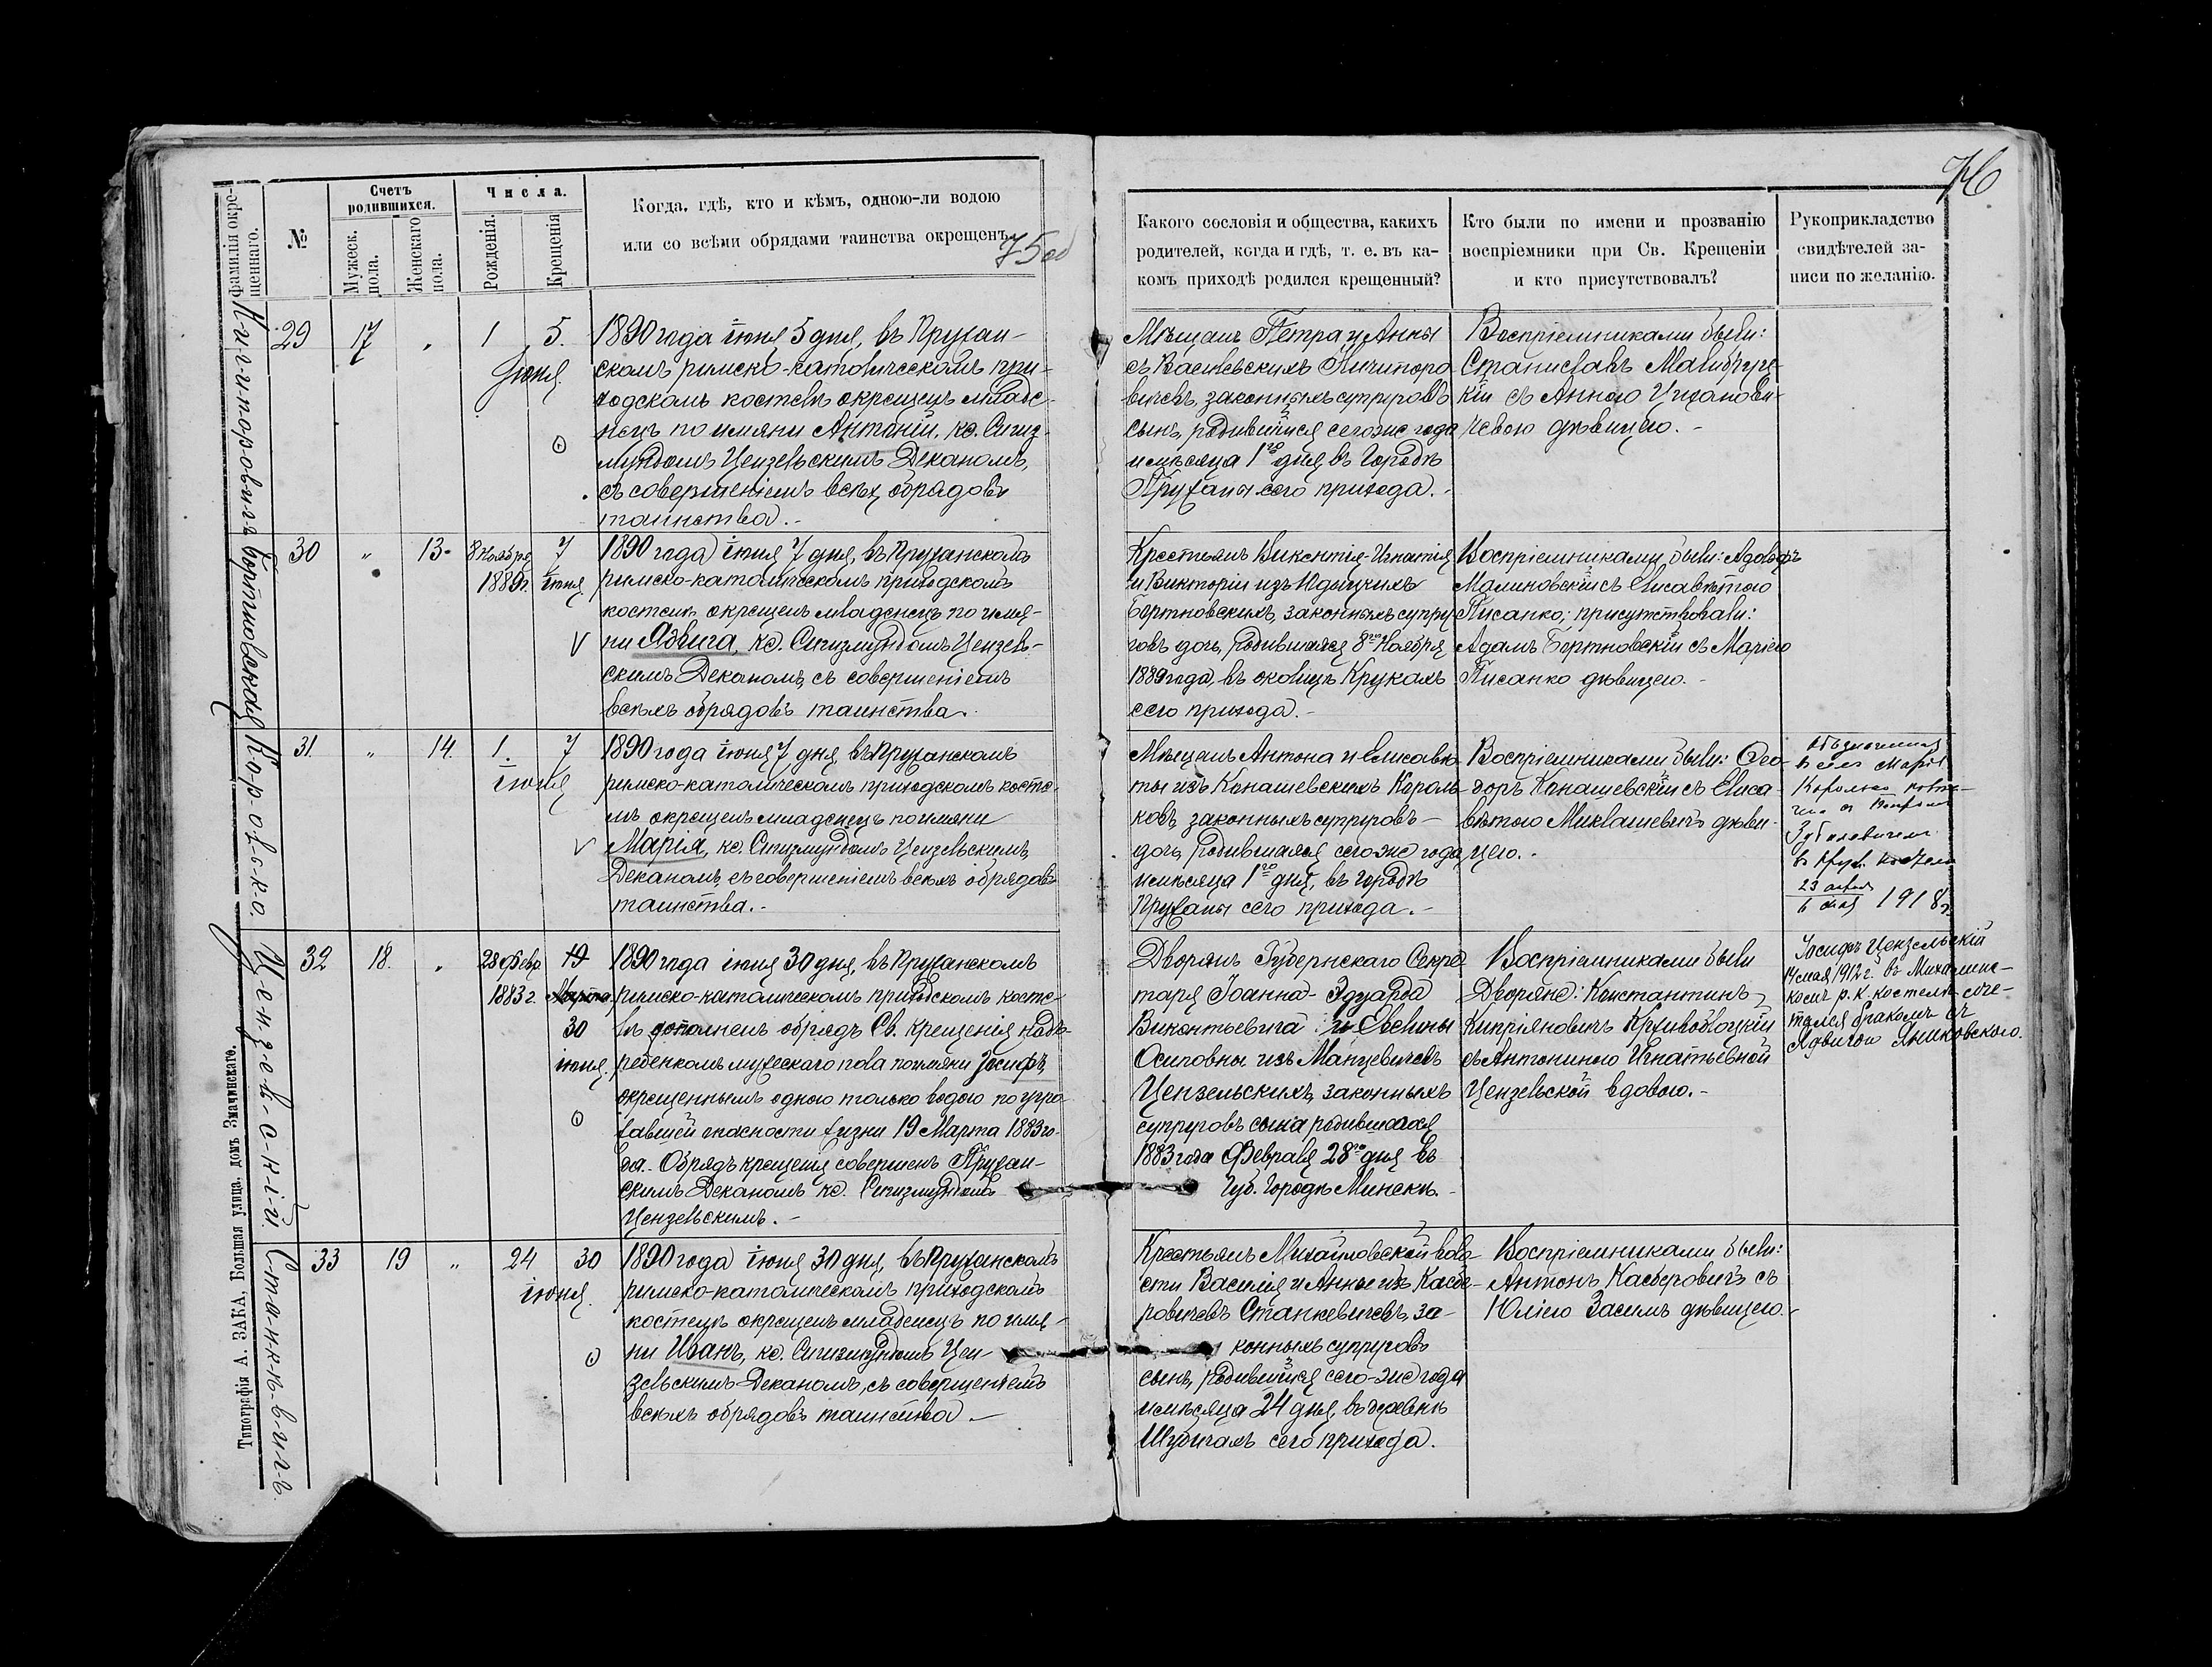 76
75об
фамилія окре-
щеннаго.
№
Счетъ
родившихся.
Мужеск.
пола.
Женскаго
пола.
Числа.
Рожденія.
Крещенія
Когда, гдѣ, кто и кѣмъ, одною-ли водою
или со всѣми обрядами таинства окрещенъ
Какого сословія и общества, какихъ
родителей, когда и гдѣ, т. е. въ ка-
комъ приходѣ родился крещенный?
Кто были по имени и прозванію
воспріемники при Св. Крещеніи
и кто присутствовалъ?
Рукоприкладство
свидѣтелей за-
писи по желанію.
29
17
„
1
5.
Іюня.
1890 года іюня 5 дня, въ Пружан-
скомъ римско-католическомъ при-
ходскомъ костелѣ окрещенъ младе-
нецъ по имяни Антоній, кс. Сигиз-
мундомъ Цензельскимъ Деканомъ,
съ совершеніемъ всѣхъ обрядовъ
таинства.-
Мѣщанъ Петра и Анны
съ Васневскихъ Ничипоро-
вичевъ, законныхъ супруговъ
сынъ, родившійся сегоже года
и мѣсяца 1го дня, въ Городѣ
Пружаны сего прихода.-
Воспріемниками были:
Станиславъ
кій съ Анною
чевою дѣвицею.-
Бортновская
30
„
13.
8 Ноября
1889г.
7
іюня
1890 года іюня 7 дня, въ Пружанскомъ
римско-католическомъ приходскомъ
костелѣ окрещенъ младенецъ по имя-
ни Ядвига, кс. Сигизмундомъ Цензель-
скимъ Деканомъ, съ совершеніемъ
всѣхъ обрядовъ таинства.
Крестьянъ Викентія-Игнатія
и Викторіи изъ
Бортновскихъ, законныхъ супру-
говъ дочь, родившаяся 8го Ноября
1889 года, въ околицѣ Крукахъ
сего прихода.-
Воспріемниками были: Адольфъ
Малиновскій съ Елисаветою
Писанко; присутствовали:
Адамъ Бортновскій съ Маріею
Писанко дѣвицею.-
К-о-р-о-л-ь-к-о.
31.
„
14.
1.
7
іюня
1890 года іюня 7 дня, въ Пружанскомъ
римско-католическомъ приходскомъ косте-
лѣ окрещенъ младенецъ по имяни
Марія, кс. Сигизмундомъ Цензельскимъ,
Деканомъ, съ совершеніемъ всѣхъ обрядовъ
таинства.-
Мѣщанъ Антона и Елисаве-
ты изъ Канашевскихъ Король-
ковъ, законныхъ супруговъ-
дочь, родившаяся сегоже года
и мѣсяца 1го дня, въ городѣ
Пружаны сего прихода.-
Воспріемниками были: Ѳео-
доръ Канашевскій съ Елиса-
ветою Миклашевичъ дѣви-
цею.-
Марія
Королько
23 апреля
6 мая 1918г.
Ц-е-н-з-е-л-ь-с-к-і-й.
32
18.
„
28 Февр.
1883 г.
19
Марта
30
іюня.
1890 года іюня 30 дня, въ Пружанскомъ
римско-католическомъ приходскомъ косте-
лѣ дополненъ обрядъ Св. Крещенія надъ
ребенкомъ мужескаго пола по имяни Іосифъ,
окрещеннымъ одною только водою по угро-
жавшей опасности жизни 19 Марта 1883 го-
да. Обрядъ крещенія совершенъ Пружан-
скимъ Деканомъ кс. Сигизмундомъ
Цензельскимъ.-
Дворянъ Губернскаго Секре-
таря Іоанна-Эдуарда
Викентьевича и Евелины
Осиповны изъ Манцевичевъ
Цензельскихъ, законныхъ
супруговъ сына родившагося
1883 года Февраля 28го дня въ
Губ. Городѣ Минскѣ.-
Воспріемниками были
Дворяне: Константинъ
Кипріяновичъ Крживоблоцкій
съ Антониною Игнатьевной
Цензельской вдовою.-
Іосифъ Цензельскій
14 мая 1912 г. въ
р. к. костелѣ соче-
тался бракомъ съ
Ядвигою Яниковскою.
С-т-а-н-к-е-в-и-ч-ъ.
33
19
„
24
30
іюня.
1890 года іюня 30 дня, въ Пружанскомъ
римско-католическомъ приходскомъ
костелѣ окрещенъ младенецъ по имя-
ни Иванъ, кс. Сигизмундомъ Цен-
зельскимъ Деканомъ, съ совершеніемъ
всѣхъ обрядовъ таинства.-
Крестьянъ Михайловской воло-
сти Василія и Анны изъ Касбе-
ровичевъ Станкевичевъ, за-
конныхъ супруговъ
сынъ, родившійся сего-же года
и мѣсяца 24 дня, въ деревнѣ
Шубичахъ сего прихода.
Воспріемниками были:
Антонъ Касберовичъ съ
Юліею Засимъ дѣвицею.-
Типографія А. ЗАКА, Большая улица, домъ Значинскаго.